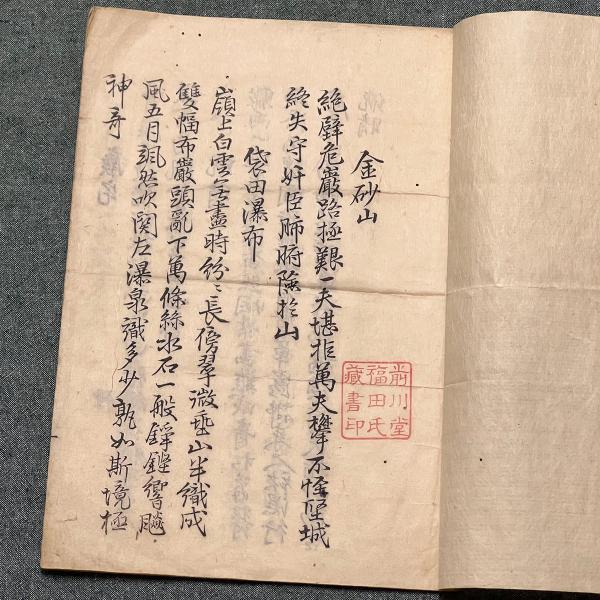 金砂山
絶壁危巌路極艱一夫堪拒萬夫攀不恠堅城
終失守奸臣肺腑險於山
袋田瀑布
嶺上白雲無盡時紛〻長傍翠微垂山半織成
雙幅布巌頭亂下萬條絲水石一般錚鏗響飈
風五月颯然吹関左瀑泉識多少孰如斯境極
神奇
前川堂
福田氏
藏書印